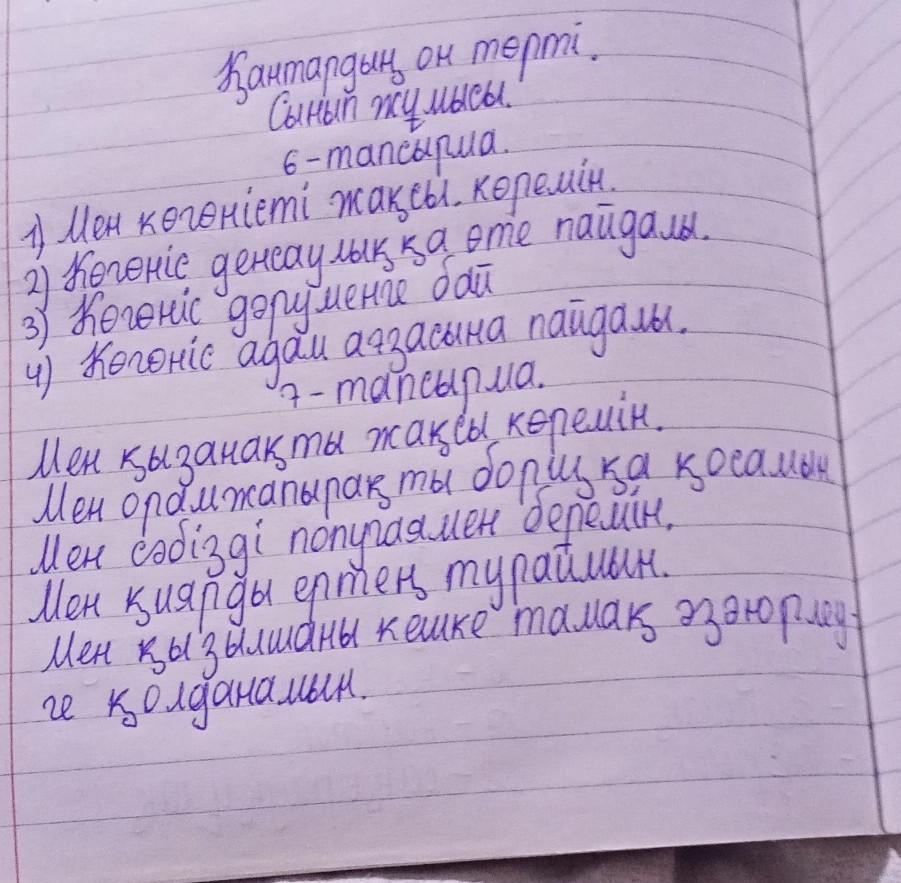 Қантардың он төрті.
Сынып жұмысы.
6-тапсырма.
1) Мен көгөністі жақсы көремін.
2) Көгөніс денсаулыққа өте пайдалы.
3) Көгөніс дәруменге бай
4) Көгөніс адам ағзасына пайдалы.
7-тапсырма.
Мен қызанақты жақсы көремін.
Мен орамжапырақты борщқа қосамын
Мен сәбізді попугаямен беремін.
Мен қиярды ертең тураймын.
Мен қызылшаны кешке тамақ әзәюрлеу-
ге қолданамын.